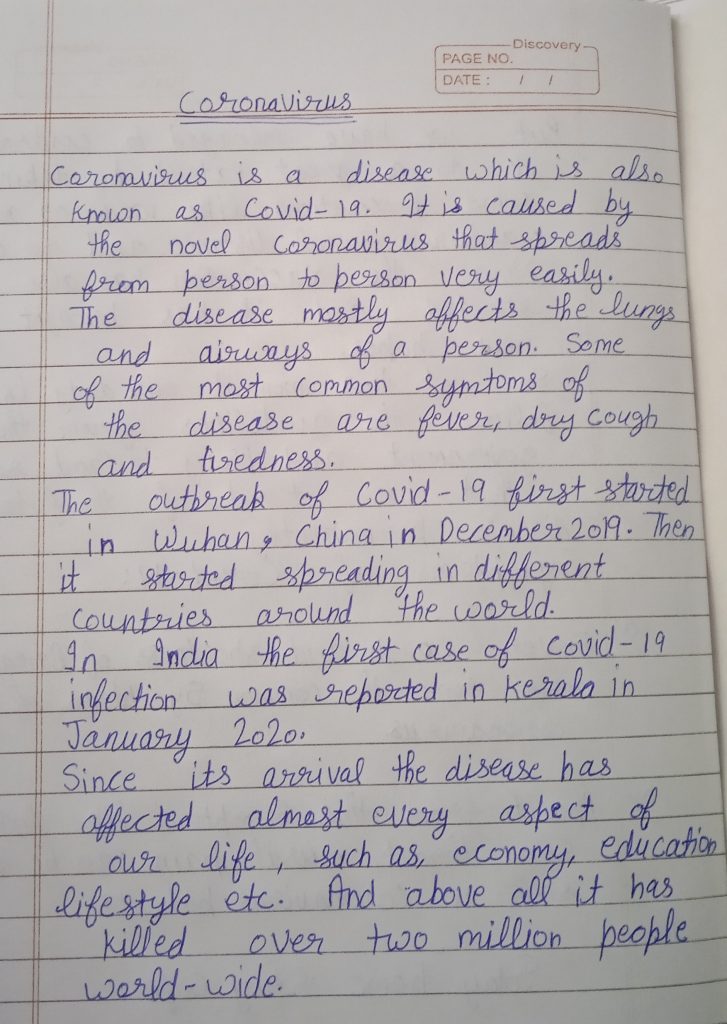 Discovery
PAGE NO.
DATE : / /
Coronavirus
Coronavirus is a disease which is also
known as Covid-19. It is caused by
the novel Coronavirus that spreads
from person to person very easily.
The disease mostly affects the lungs
and airways of a person. Some
of the most common symtoms of
the disease are fever, dry cough
and tiredness.
The outbreak of Covid-19 first started
in Wuhan, China in December 2019. Then
it started spreading in different
countries around the world.
In India the first case of Covid-19
infection was reported in Kerala in
January 2020.
Since its arrival the disease has
affected almost every aspect of
our life, such as, economy, education
lifestyle etc. And above all it has
killed over two million people
world-wide.